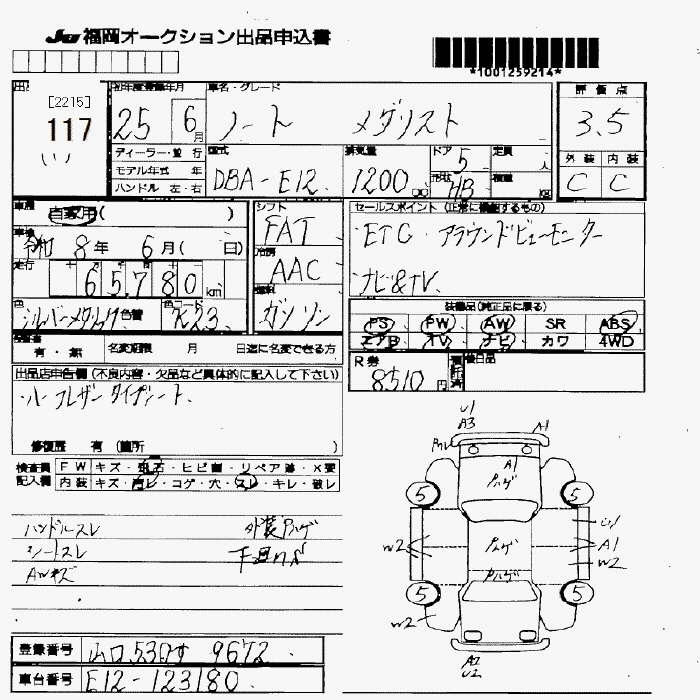 JU 福岡オークション出品申込書
*1001259214*
[2215]
117
初年度登録年月
25 6月
車名・グレード
ノート メダリスト
評価点
3.5
ディーラー・並行
モデル年式 年
ハンドル 左・右
型式
DBA-E12
排気量
1200 cc
ドア 5
形状 HB
定員 人
積載 kg
外装 内装
C C
車歴 自家用( )
車検 令和 8年 6月( 日)
走行 65,780 km
色 シルバーメタリック 色替
色コード K23
シフト FAT
冷房 AAC
燃料 ガソリン
セールスポイント(正常に機能するもの)
ETC・アラウンドビューモニター
ナビ&TV
装備品(純正品に限る)
PS PW AW SR ABS
エアB TV ナビ カワ 4WD
有・無
名変期限 月 日迄に名変できる方
R券 8510円 預託済
後日品
出品店申告欄(不良内容・欠品など具体的に記入して下さい)
・ハーフレザータイプシート
修復歴 有 (箇所 )
検査員記入欄
FW キズ・飛石・ヒビ割・リペア跡・X要
内装 キズ・汚レ・コゲ・穴・スレ・キレ・破レ
ハンドルスレ 外装ハゲ
シートスレ 下回りサビ
AWキズ
U1
A3 A1
A1
ハゲ
5 5
U1
W2 ハゲ A1
W2
ハゲ
5 5
W2
A2
U2
登録番号 山口 530 す 9672
車台番号 E12-123180